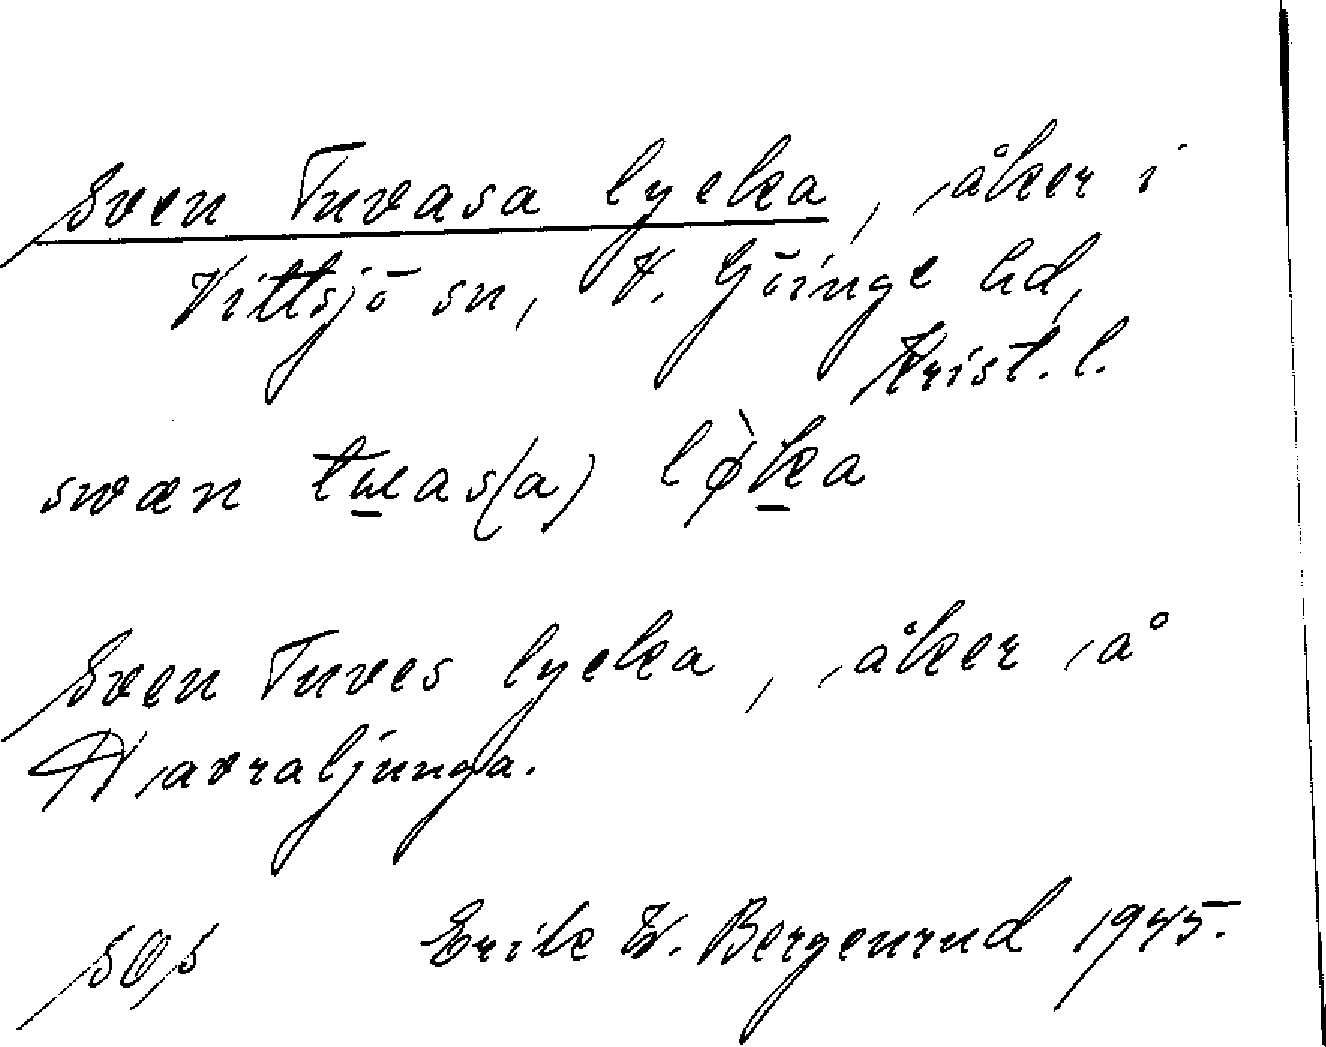 Sven Tuvasa lycka, åker i
Vittsjö sn, V. Göinge hd,
Krist. l.
svæn tuas(a) lø̀ka
Sven Tuves lycka, åker å
Havraljunga.
SOS Erik W. Bergenrud 1945.